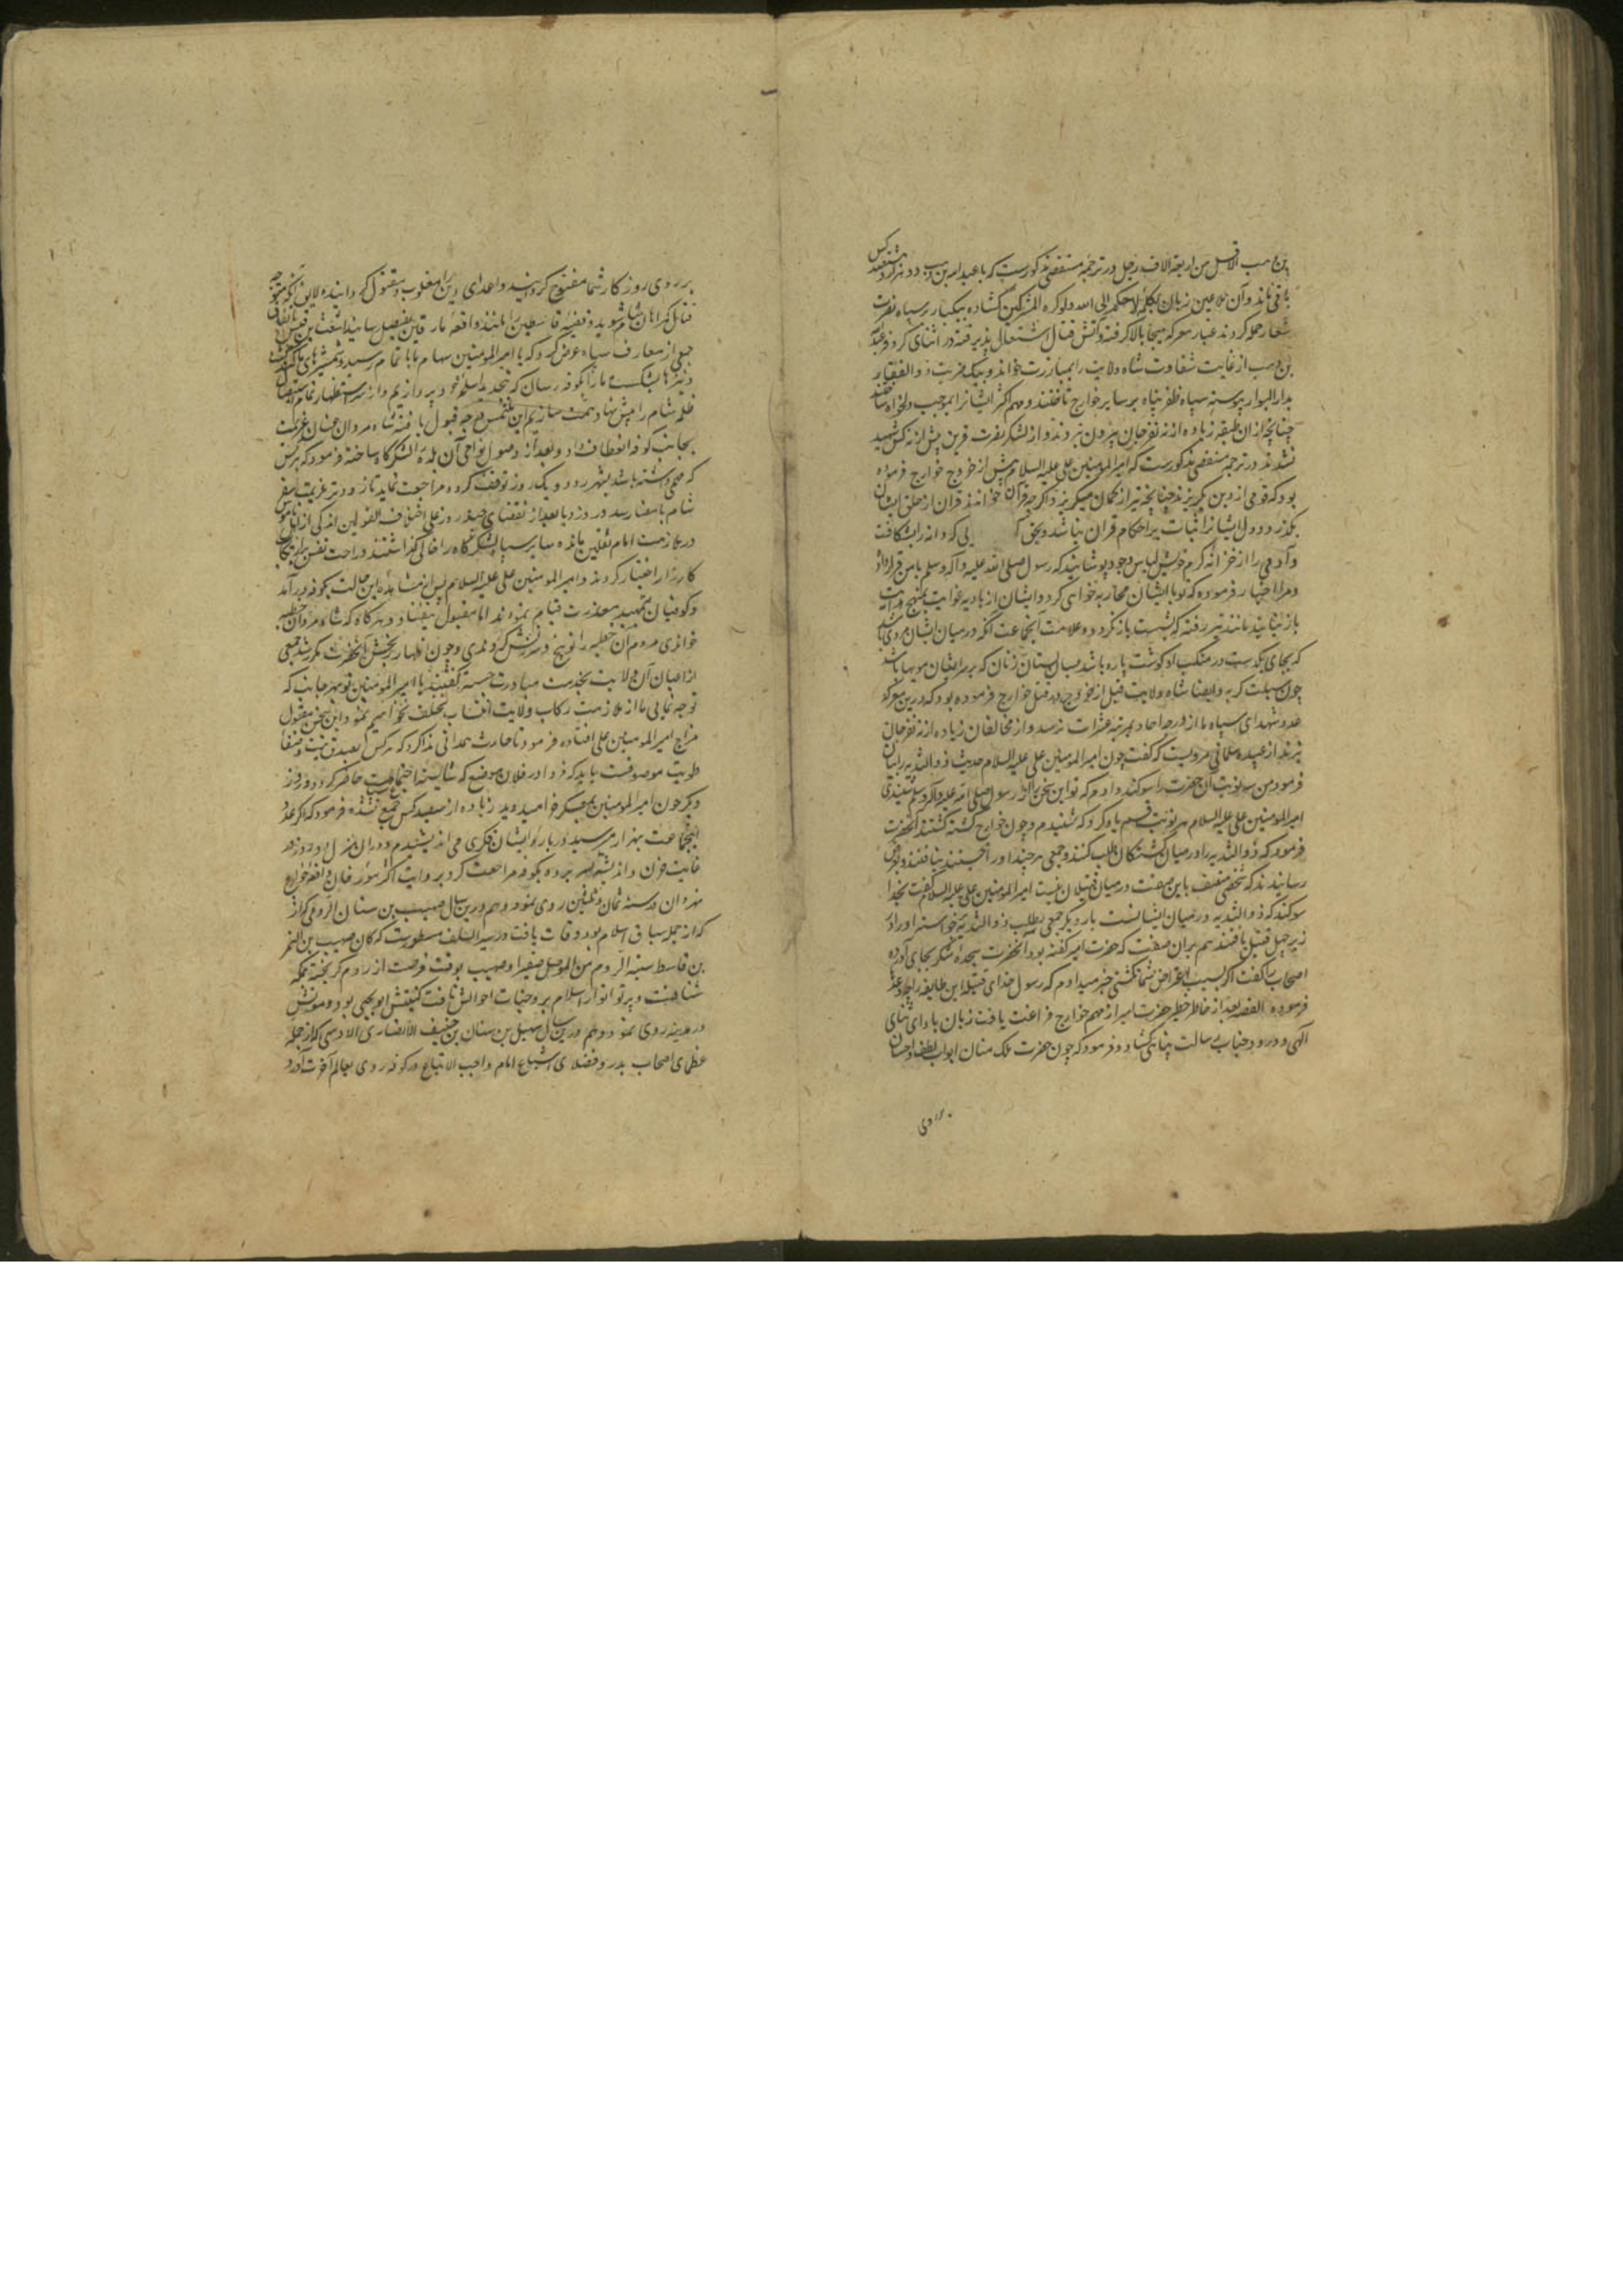 بن وهب الا اقل من اربعة الاف رجل در ترجمه مستقصی مذکورست که با عبدالله بن وهب دو هزار و هشتصد کس
باقی ماند و آن ملاعین زبان بکلمه لا حکم الا لله ولو کره المشرکین گشاده بیکبار بر سپاه نصرت
شعار حمله کردند غبار معرکه هیجا بالا گرفته و آتش قتال اشتعال پذیرفته در اثنای کر و فر عبدالله
بن وهب از غایت شقاوت شاه ولایت را بمبارزت خواند و بیک ضربت ذوالفقار
بدار البوار پیوسته سپاه ظفر پناه بر سایر خوارج تاختند و مهم اکثر ایشانرا بموجب دلخواه ساختند
چنانچه از ان طبقه زیاده از نه نفر جان بیرون نبردند و از لشکر نصرت قرین بیش از نه کس شهید
نشدند در ترجمه مستقصی مذکورست که امیرالمومنین علی علیه السلام پیش از خروج خوارج فرموده
بود که قومی از دین بگریزند چنانچه تیر از کمان میگریزد و اگر چه قرآن خوانند قران از حلق ایشان
نگذرد و دل ایشانرا ثبات بر احکام قران نباشد و بحق آ لی که دانه را بشکافت
و آدمی را از خزانه کرم خویش لباس وجود پوشانید که رسول صلی الله علیه و آله وسلم با من قرار داد
و مرا اخبار فرموده که تو با ایشان محاربه خواهی کرد و ایشان از بادیه غوایت بمنهج هدایت
باز نیایند مانند تیر رفته که بشست باز نگردد و علامت آنجماعت آنکه در میان ایشان مردی باشد
که بجای یکدست در منکب او گوشت پاره باشد بسان پستان زنان که بر سر ایشان مویها باشد
چون سبلت گربه و ایضا شاه ولایت قبل از خروج و قتل خوارج فرموده بود که درین معرکه
عدد شهدای سپاه ما از درجه احاد بمرتبه عشرات نرسد و از مخالفان زیاده از نه نفر جان
نبرند از عبیده سلمانی مرویست که گفت چون امیرالمومنین علی علیه السلام حدیث ذوالثدیه را بیان
فرمود من سه نوبت آن حضرت را سوگند دادم که تو این سخن را از رسول صلی الله علیه و آله وسلم شنیدی
امیرالمومنین علی علیه السلام هر نوبت قسم یاد کرد که شنیدم و چون خوارج کشته گشتند آنحضرت
فرمود که ذوالثدیه را در میان کشتگان طلب کنند و جمعی هر چند او را جستند نیافتند و بعرض
رسانیدند که شخصی متصف باین صفت در میان قتیلان نیست امیرالمومنین علی علیه السلام گفت بخدا
سوگند که ذوالثدیه در میان ایشانست بار دیگر جمعی بطلب ذوالثدیه خواسته او را در
زیر چهل قتیل یافتند هم بران صفت که حضرت امیر گفته بود آنحضرت سجده شکر بجای آورده
اصحاب را گفت اگر بسبب اعراض شما نگشتی خبر میدادم که رسول خدای قتله این طایفه را چه وعده
فرموده القصه بعد از خاطر خطیر حضرت امیر از مهم خوارج فراغت یافت زبان بادای ثنای
الهی و درود جناب رسالت پناهی گشاد و فرمود که چون حضرت ملک منان ابواب لطف و احسان
بر روی روزگار شما مفتوح گردانید و اعدای دین را مغلوب و مقتول گردانیده لایق آنکه متوجه
قتال گمراهان شام شوید و قضیه قاسطین را مانند واقعه مارقین بفیصل رسانید اشعث بن قیس باتفاق
جمعی از معارف سپاه عرض کرد که یا امیرالمومنین سهام ما باتمام رسید و شمشیرهای ما کند گشت
و نیزها شکست ما را بکوفه رسان که بتجدید اسلحه خود پردازیم و از سر استظهار تمام استیصال
ظلمه شام را پیش نهاد همت سازیم این ملتمس بعز قبول یافته شاه مردان عنان عزیمت
بجانب کوفه انعطاف داد و بعد از وصول بنواحی آن بلده لشکرگاه ساخته فرمود که هر کس
که مهمی داشته باشد بشهر رود و یک روز توقف کرده مراجعت نماید تا زودتر عزیمت سفر
شام بامضا رسد و بعد از انقضای چند روز علی اختلاف القولین اندکی از
در ملازمت امام ثقلین مانده سایر سپاه لشکرگاه را خالی گذاشتند و راحت نفس را بر
کارزار اختیار کردند و امیرالمومنین علی علیه السلام پس از مشاهده این حالت بکوفه در آمد
و کوفیان بتمهید معذرت قیام نمودند اما مقبول نیفتاد و هرگاه که شاه مردان خطبه
خواندی مردم آن خطه را توبیخ و سرزنش کردندی و چون اظهار رنجش آنحضرت مکرر شد جمعی
از اعیان آن ولایت بخدمت مبادرت جسته گفتند یا امیرالمومنین تو بهر جانب که
توجه نمایی ما از ملازمت رکاب ولایت انتساب تخلف نخواهیم نمود و این سخن مقبول
مزاج امیرالمومنین علی افتاده فرمود تا حارث همدانی ندا کرد که هر کس بصدق نیت و صفا
طویت موصوفست باید که فردا در فلان موضع که شایسته اجتماعست حاضر گردد و روز
دیگر چون امیرالمومنین بمعسکر خرامید و دید زیاده از سیصد کس جمع نشده فرمود که اگر عدد
اینجماعت بهزار میرسید درباره ایشان فکری می اندیشیدم و در ان منزل دو روز در
غایت حزن و اندیشه بسر برده بکوفه مراجعت کرد بروایت اکثر مورخان واقعه خوارج
نهروان در سنه ثمان و ثلثین روی نمود و هم درین سال صهیب بن سنان الرومی که از
که از جمله سباق اسلام بود وفات یافت در سیر السلف مسطورست که کان صهیب بن النمر
بن قاسط سبته الروم من الموصل صغیرا و صهیب بوقت فرصت از روم گریخته بمکه
شتافت و پرتو انوار اسلام بر وجنات احوالش تافت کنیتش ابو یحیی بود و موتش
در مدینه روی نمود و هم درین سال سهیل بن سنان بن حنیف الانصاری الاوسی که از جمله
عظمای اصحاب بدر و فضلای اشیاع امام واجب الاتباع در کوفه روی بعالم آخرت آورد